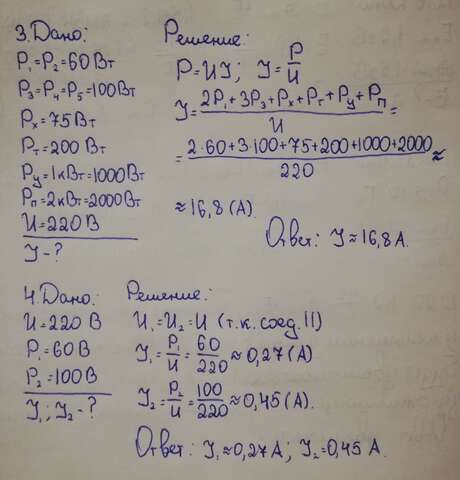 3. Дано:
P₁=P₂=60 Вт
P₃=P₄=P₅=100Вт
Pₓ=75 Вт
Pт=200 Вт
Pу=1кВт=1000Вт
Pп=2кВт=2000Вт
U=220 В
J-?
Решение:
P=UJ; J=P/U
J=(2P₁+3P₃+Pₓ+Pт+Pу+Pп)/U=
=(2·60+3·100+75+200+1000+2000)/220≈
≈16,8 (А).
Ответ: J≈16,8 А.
4. Дано:
U=220 В
P₁=60В
P₂=100В
J₁; J₂-?
Решение:
U₁=U₂=U (т.к. соед. II)
J₁=P₁/U=60/220≈0,27(А)
J₂=P₂/U=100/220≈0,45(А).
Ответ: J₁≈0,27А; J₂=0,45 А.